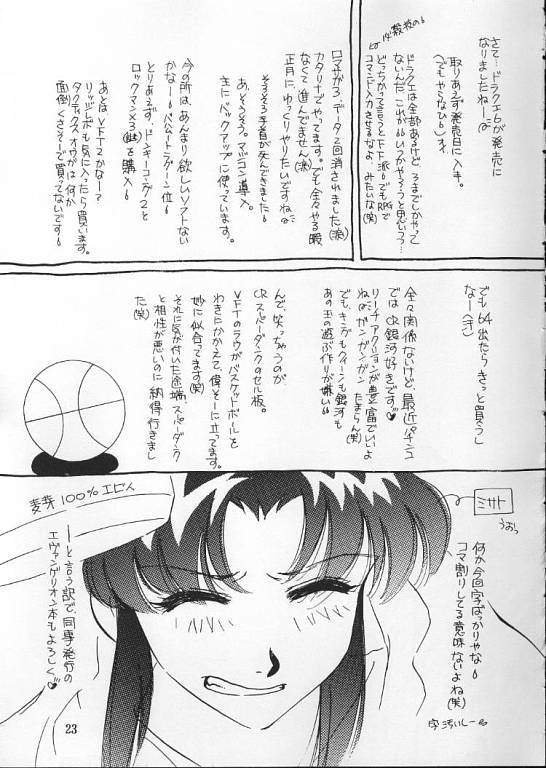 さて…ドラクエ6が発売に
なりましたねー。
取りあえず発売日に入手。
(でもやらないひも)オイ
ドラクエは全部あるけど 3までしかやって
ないんだ これが いつかやろうと思いつつ…
どっちかって言うとFF派 でもRPGで
コマンド入力させるなよ みたいな(笑)
ロマサガ3 データ2回消されました(涙)
カタリナでやってます。でも全々やる暇
なくて進んでません(涙)
正月に、ゆっくりやりたいですね
そろそろ予備が死んできました
あ、そろそろ。マジコン導入。
主にバックアップに使っています。
今の所は、あんまり欲しいソフトない
かなー バハムートラグーン位
とりあえず、ドンキーコング2と
ロックマンX3(謎)を購入
あとはVFT2かなー?
リッジレボも気に入ったら買います。
タクティクスオウガは何か
面倒くさそーで買ってないです
でも64出たらきっと買うし
なー(汗)
全々関係ないけど、最近パチンコ
では CR銀河好きです♡
リーチアクションが豊富でいいよ
ねガンガンガン たまらん(笑)
でも、キュティもクィーンも銀河も
あの玉の遊ぶ作りが嫌い
んで、笑っちゃうのが
CRスーパーダンクのセル板。
VFTのラウがバスケットボールを
わきにかかえて、偉そーに立ってます。
妙に似合ってます(笑)
それに気が付いた途端、スーパーダンク
と相性が悪いのに 納得行きまし
た(笑)
ミサト
うおっ
何か今回字ばっかりやな
コマ割りしてる意味ないよね(笑)
字汚いしー
麦芽100%エビス
ーーと言う訳で、同時発行の
エヴァンゲリオン本もよろしく♡
23